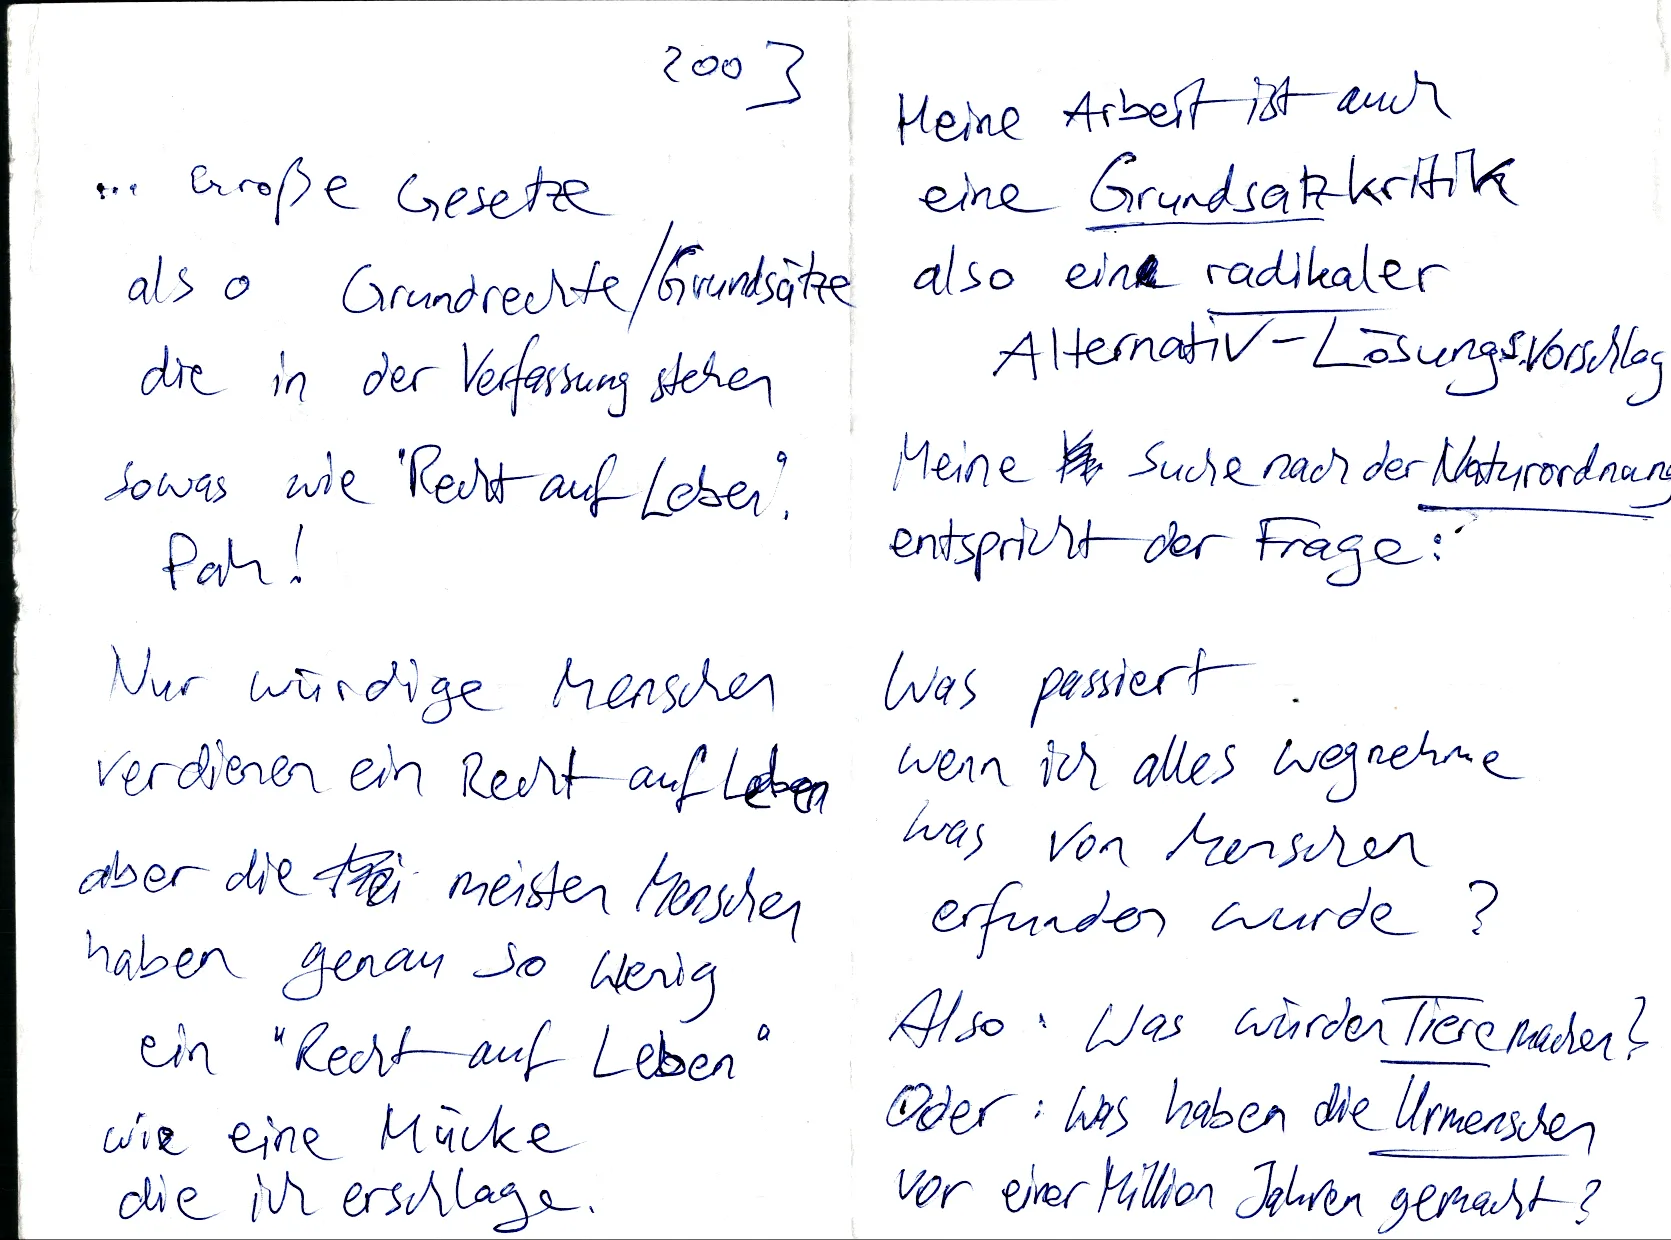 2003
... Große Gesetze
also Grundrechte/Grundsätze
die in der Verfassung stehen
sowas wie "Recht auf Leben".
Pah!
Nur würdige Menschen
verdienen ein Recht auf Leben
aber die meisten Menschen
haben genau so wenig
ein "Recht auf Leben"
wie eine Mücke
die ich erschlage.
Meine Arbeit ist auch
eine Grundsatzkritik
also ein radikaler
Alternativ-Lösungsvorschlag
Meine Suche nach der Naturordnung
entspricht der Frage:
Was passiert
wenn ich alles wegnehme
was von Menschen
erfunden wurde?
Also: Was würden Tiere machen?
Oder: Was haben die Urmenschen
vor einer Million Jahren gemacht?